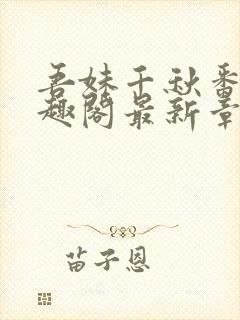 吾妹千秋番
趣阁最新章
苗子恩